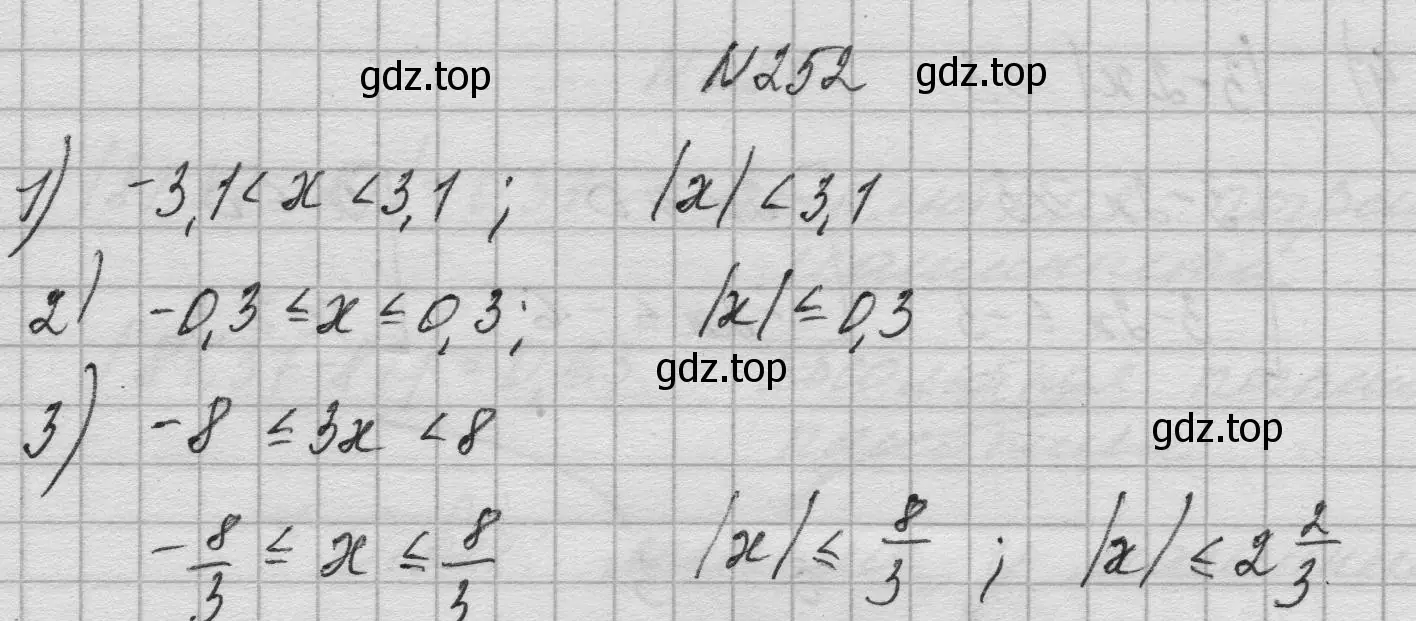 gdz.top N 252 gdz.top
1) -3,1 < x < 3,1 ; |x| < 3,1
2) -0,3 ≤ x ≤ 0,3 ; |x| ≤ 0,3
gdz.top
3) -8 ≤ 3x < 8
gdz.top
-8/3 ≤ x ≤ 8/3 |x| ≤ 8/3 ; |x| ≤ 2 2/3